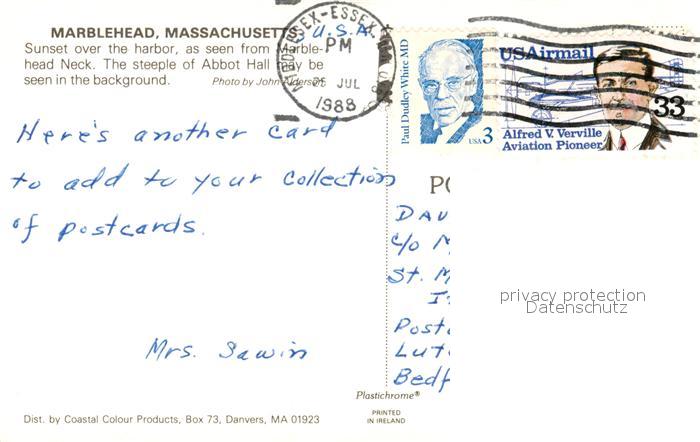 MARBLEHEAD, MASSACHUSETTS U.S.A.
Sunset over the harbor, as seen from Marble-
head Neck. The steeple of Abbot Hall may be
seen in the background. Photo by John
MIDDLESEX-ESSEX
PM
25 JUL
1988
Paul Dudley White MD
USA 3
USAirmail
33
Alfred V. Verville
Aviation Pioneer
Here's another card
to add to your collection
of postcards.
Mrs. Sawin
PO
DAV
c/o M
St. M
I
Postc
Lut
Bedf
privacy protection
Datenschutz
Plastichrome®
PRINTED
IN IRELAND
Dist. by Coastal Colour Products, Box 73, Danvers, MA 01923